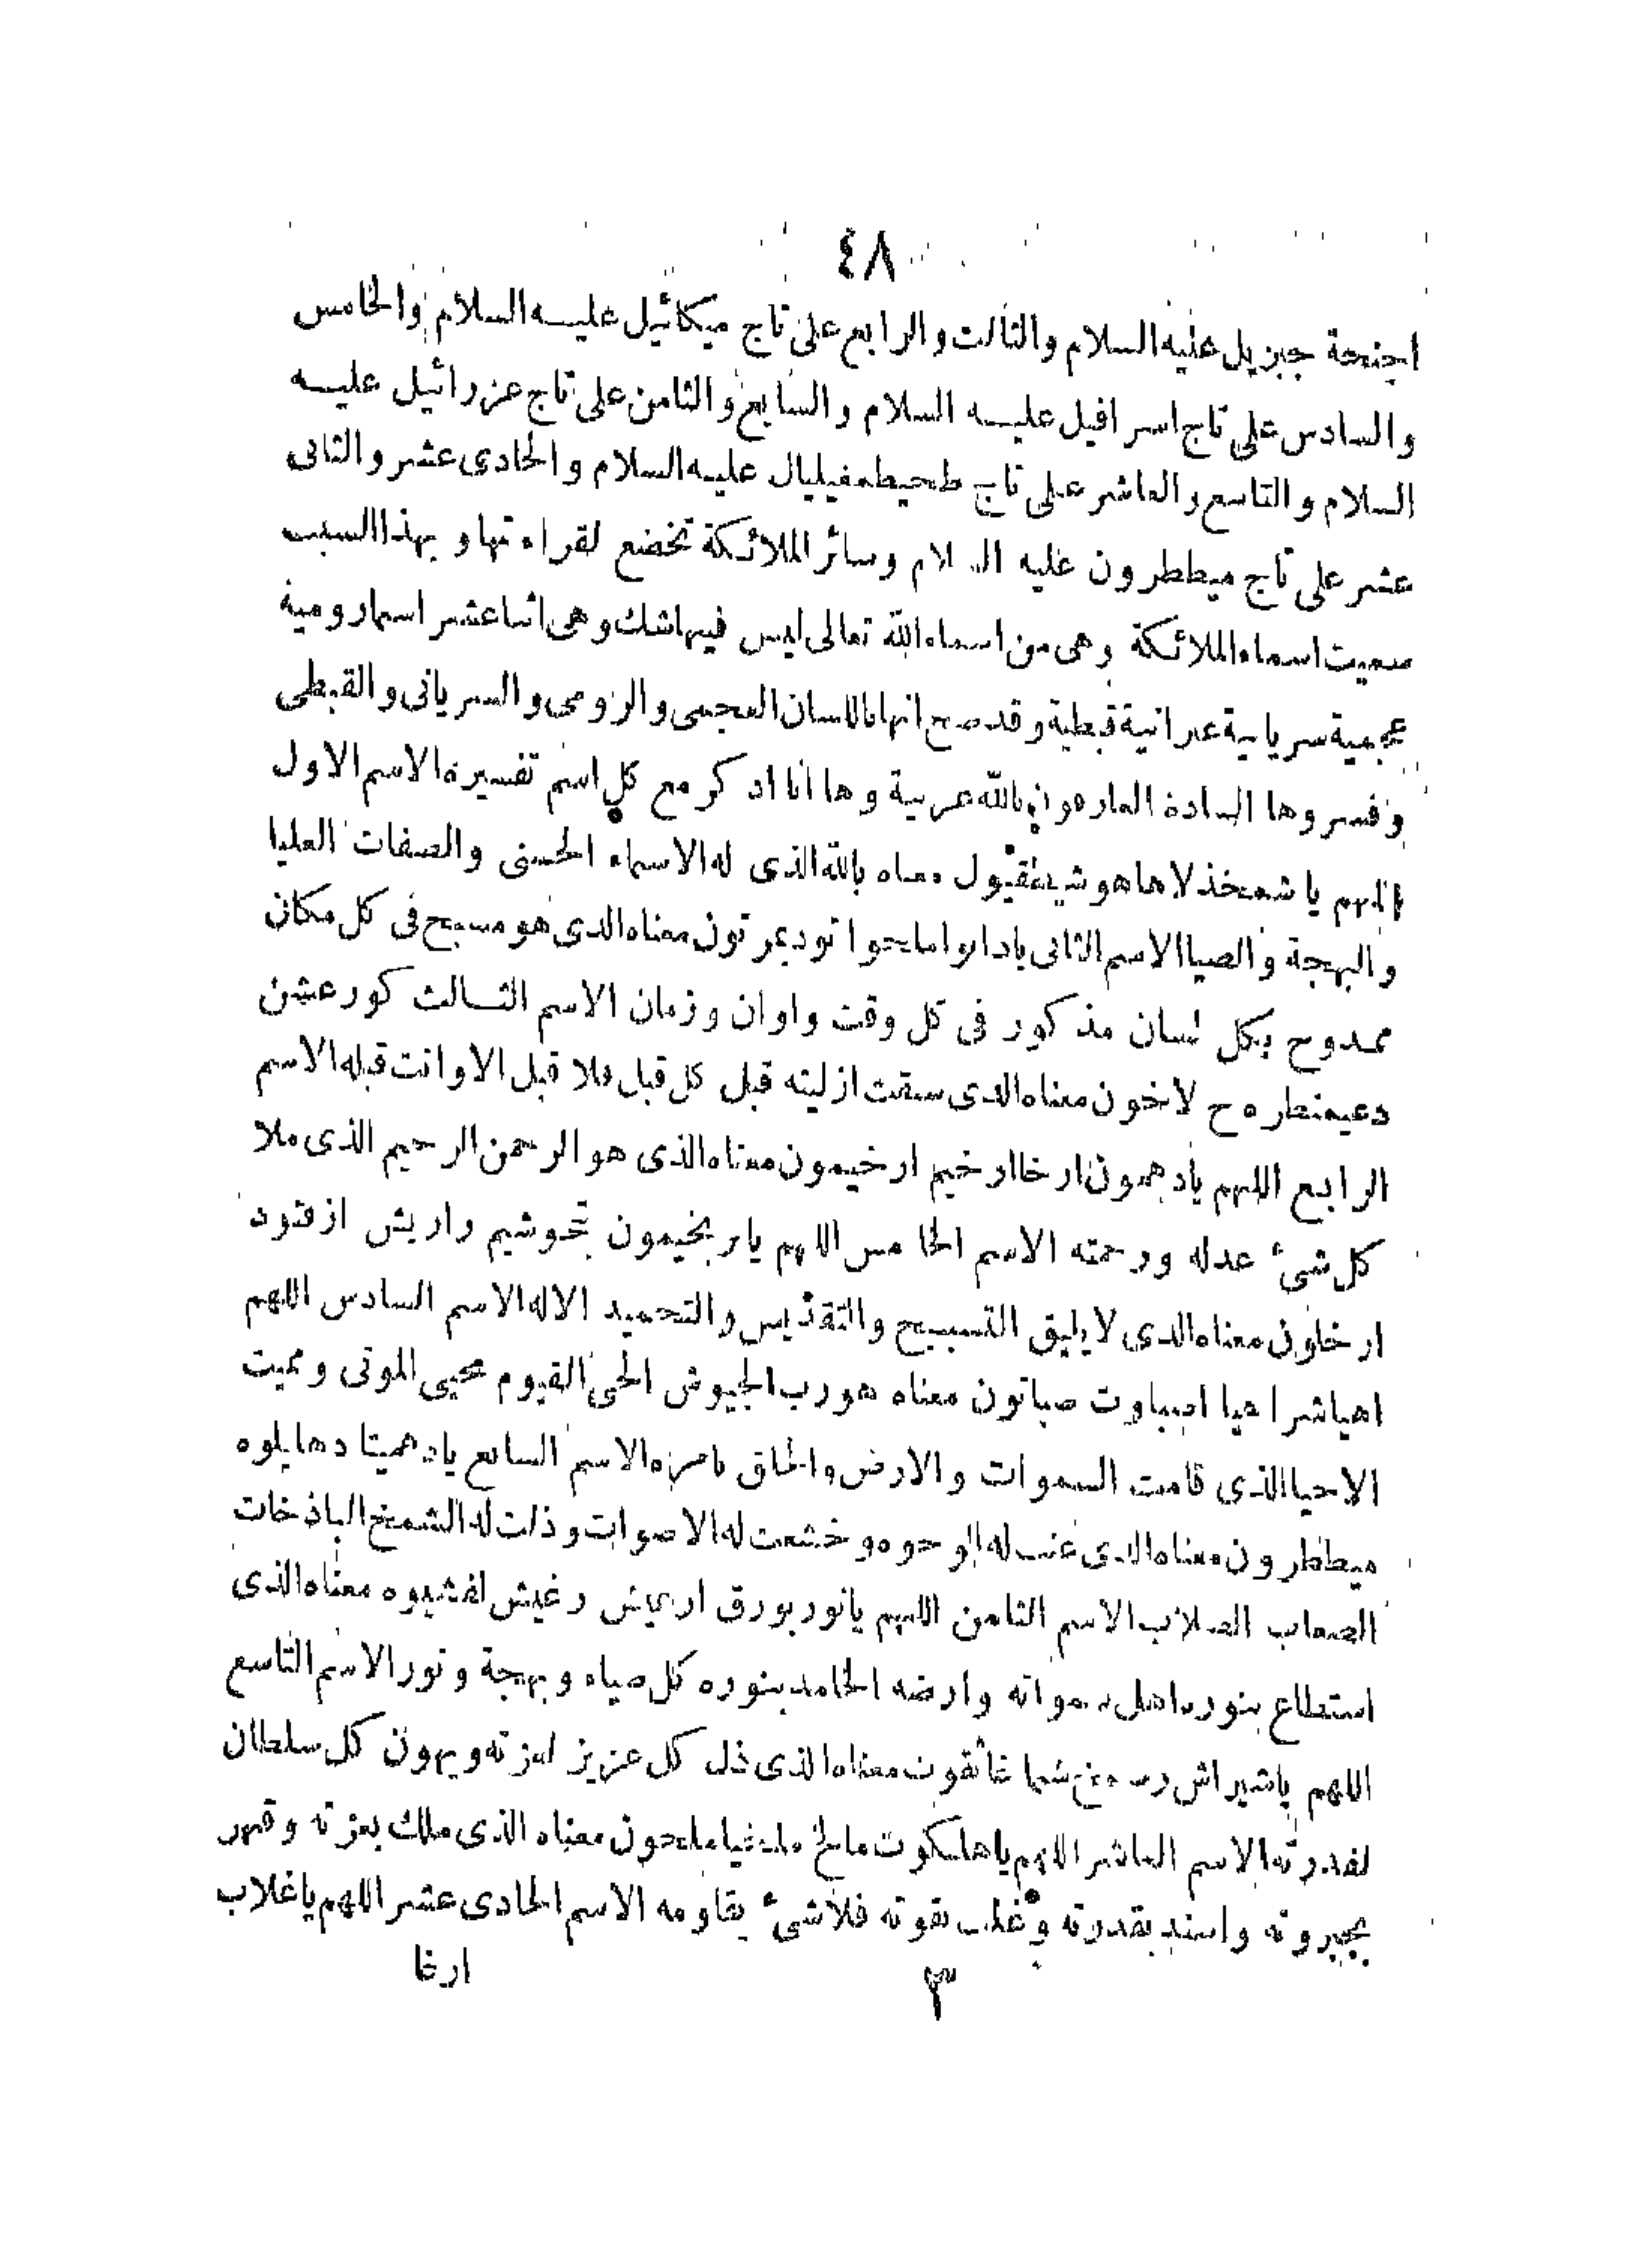 ٤٨
اجنحة جبريل عليه السلام والثالث والرابع على تاج ميكائيل عليه السلام والخامس
والسادس على تاج اسرافيل عليه السلام والسابع والثامن على تاج عزرائيل عليه
السلام والتاسع والعاشر على تاج طحيطمغيليال عليه السلام والحادى عشر والثانى
عشر على تاج ميططرون عليه السلام وسائر الملائكة تخضع لقراءتها وبهذا السبب
سميت اسماء الملائكة وهى من اسماء الله تعالى ليس فيها شك وهى اثنا عشر اسما رومية
عجمية سريانية عبرانية قبطية وقد صح انها باللسان العجمى والرومى والسريانى والقبطى
وفسروها السادة العارفون بالله عربية وها انا اذكر مع كل اسم تفسيره الاسم الاول
اللهم يا شمخذلاهاهو فيقول معناه بالله الذى له الاسماء الحسنى والصفات العليا
والبهجة والضيا الاسم الثانى معناه الذى هو مسبح فى كل مكان
ممدوح بكل لسان مذكور فى كل وقت واوان وزمان الاسم الثالث كورعش
لاخون معناه الذى سبقت ازليته قبل كل قبل فلا قبل الا وانت قبله الاسم
الرابع اللهم يادهمون ارخا ارخيم ارخيمون معناه الذى هو الرحمن الرحيم الذى ملا
كل شىء عدله ورحمته الاسم الخامس اللهم يا ربخيمون نحوشيم واريش ازقنود
ارخلون معناه الذى لا يليق التسبيح والتقديس والتحميد الا له الاسم السادس اللهم
اهيا شراهيا اصباوت صباتون معناه هو رب الجيوش الحى القيوم محيى الموتى ومميت
الاحيا الذى قامت السموات والارض والخلق بامره الاسم السابع يادهميثا دهايلوه
ميططرون معناه الذى عنت له الوجوه وخشعت له الاصوات وذلت له الشمخ الباذخات
الصعاب الصلاب الاسم الثامن اللهم يا نور بورق رغيش لغشيوه معناه الذى
استطاع بنوره اهل سمواته وارضه الخامد بنوره كل ضياء وبهجة ونور الاسم التاسع
اللهم ياشيراش معناه الذى ذل كل عزيز لعزته ويهون كل سلطان
لقدرته الاسم العاشر اللهم يا هلكوت مالخ ملحون معناه الذى ملك بعزته وقهر
بجبروته بقدرته وغلب بقوته فلا شىء يقاومه الاسم الحادى عشر اللهم يا غلاب
٣ ارغا